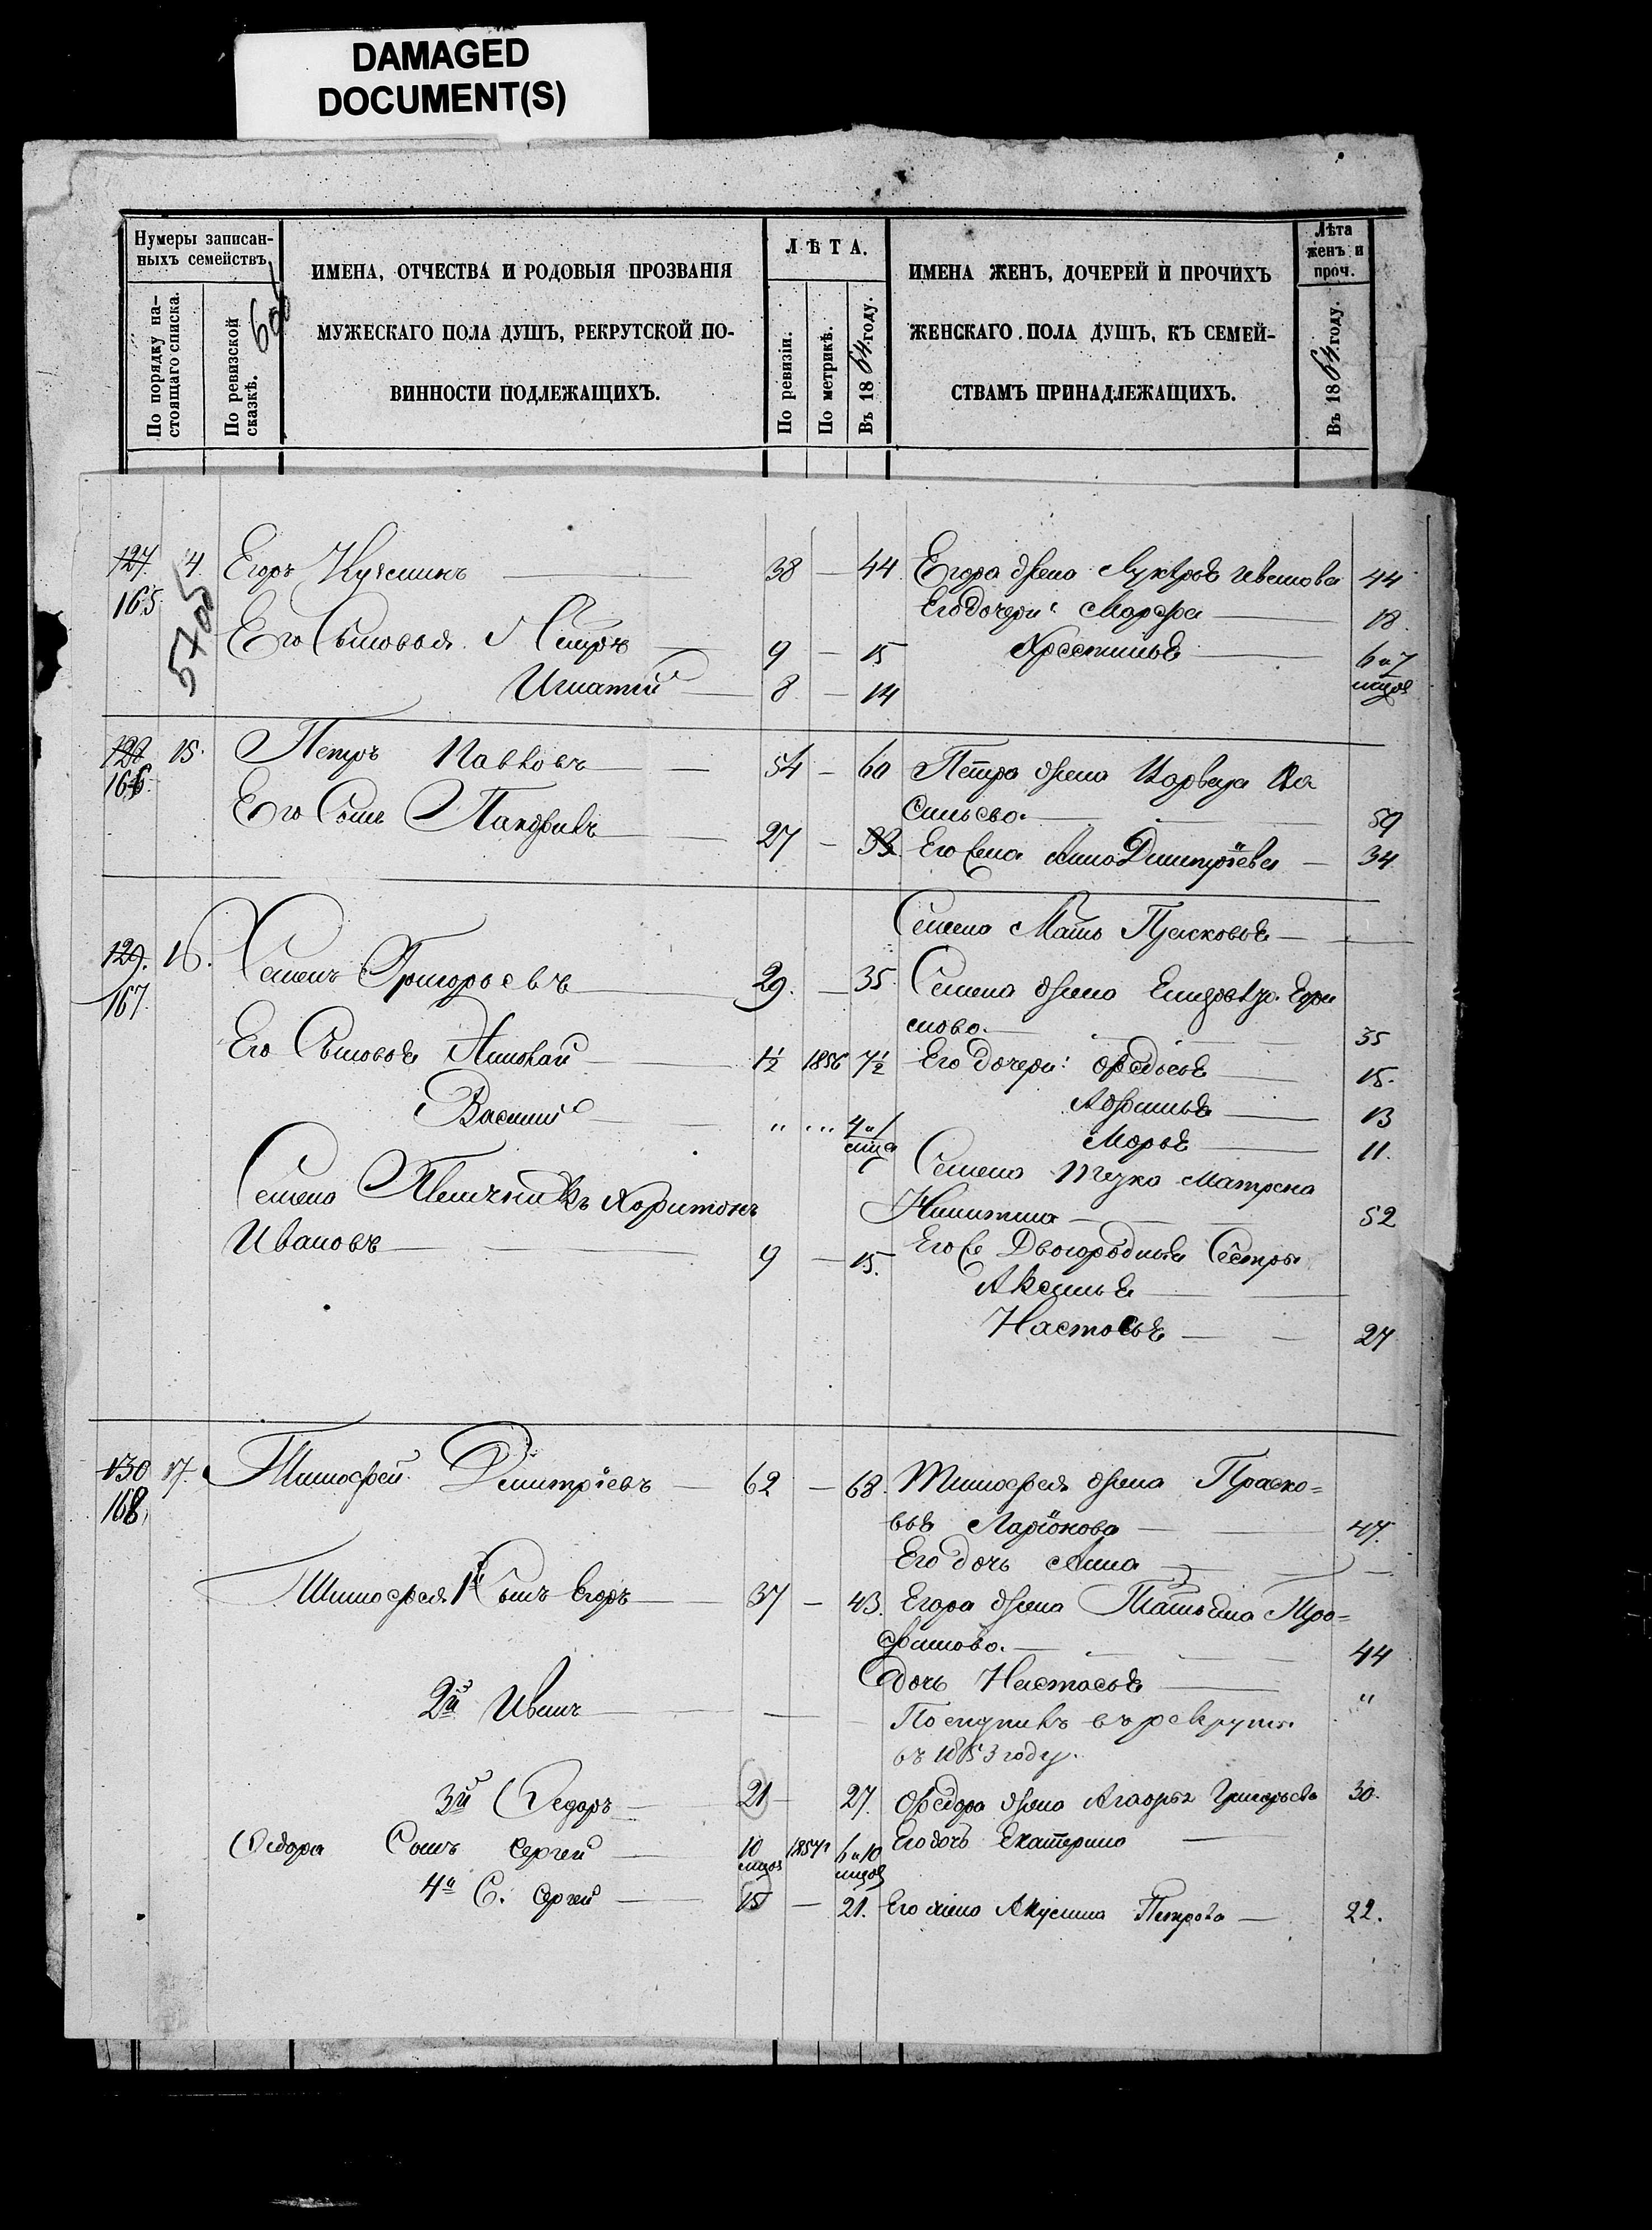 DAMAGED
DOCUMENT(S)
Нумеры записан-
ныхъ семействъ
По порядку на-
стоящаго списка.
По ревизской
сказкѣ.
ИМЕНА, ОТЧЕСТВА И РОДОВЫЯ ПРОЗВАНІЯ
МУЖЕСКАГО ПОЛА ДУШЪ, РЕКРУТСКОЙ ПО-
ВИННОСТИ ПОДЛЕЖАЩИХЪ.
ЛѢТА.
По ревизіи.
По метрикѣ.
Въ 1864 году.
ИМЕНА ЖЕНЪ, ДОЧЕРЕЙ И ПРОЧИХЪ
ЖЕНСКАГО ПОЛА ДУШЪ, КЪ СЕМЕЙ-
СТВАМЪ ПРИНАДЛЕЖАЩИХЪ.
Лѣта
женъ и
проч.
Въ 1864 году.
127 14. Егоръ Кузминъ 38 — 44 Егора жена Лукѣрья Иванова 44
165 Его дочери: Марфа 18
5705
Его Сыновья Петръ 9 — 15 Хрестинья 6 и 7
Игнатій 8 — 14 мцов
128 15. Петръ Павловъ 54 — 60 Петра жена Варвара Ва
166
сильева 59
Его Сынъ 27 — 33 Его жена Анна Дмитріева — 34
Семена Мать Прасковья
129. 16. Семенъ Григорьевъ 29. — 35 Семена жена
167
35
Его Сыновья Николай 1½ 1856 7½ Его дочери: Федосья 15.
Авдотья 13
Василій " ... 4 и 1 Марья 11.
мца
Семена Матрена
Семена Племянникъ Харитонъ
Никитина 52
Ивановъ 9 — 15. Его Двоюродныя Сестры
Аксинья
Настасья 27
130 17. Тимофей Дмитріевъ — 62 — 68. Тимофея жена Праско=
168
вья Ларіонова 47.
Его дочь Анна
Тимофея 1й Сынъ Егоръ 37 — 43. Егора жена Татьяна Тро=
фимова. 44
дочь Настасья "
2й Иванъ
Поступилъ въ рекруты
въ 1853 году.
3й Федоръ 21 — 27. Федора жена Агафья Григорьева 30.
Федора Сынъ Сергей 10 1857 6 и 10 Его дочь Екатерина
мцов мцов
4й С. Сергей 15 — 21. Его жена Акулина Петрова — 22.